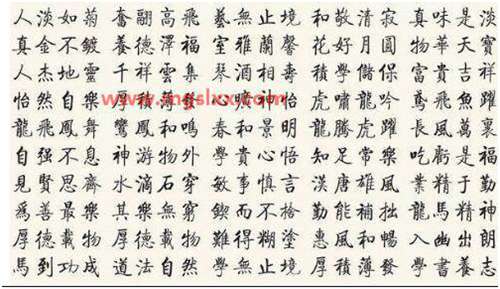 人淡如菊 奮翮高飛 藝無止境 和敬清寂 真味是淡
真金不鍍 養德澤福 室雅蘭馨 花好月圓 物華天寶
人杰地靈 千祥雲集 琴酒相壽 積學儲 富貴吉祥
怡然自樂 怡 虎嘯龍吟 鳶飛魚躍
www.mgslxx.com
龍飛鳳舞 鸞鳳和鳴 春和景明 龍騰虎躍 長風萬裏
自强不息 神游物外 學貴心悟 知足常樂 吃虧是福
見賢思齊 水滴石穿 敏事慎言 漢唐雄風 業精于勤
爲善最樂 其樂無窮 鍥而不捨 勤能補拙 龍馬精神
厚德載物 厚德載物 難得糊塗 惠風和暢 入幽出朗
馬到功成 道法自然 學無止境 厚積薄發 學書養志